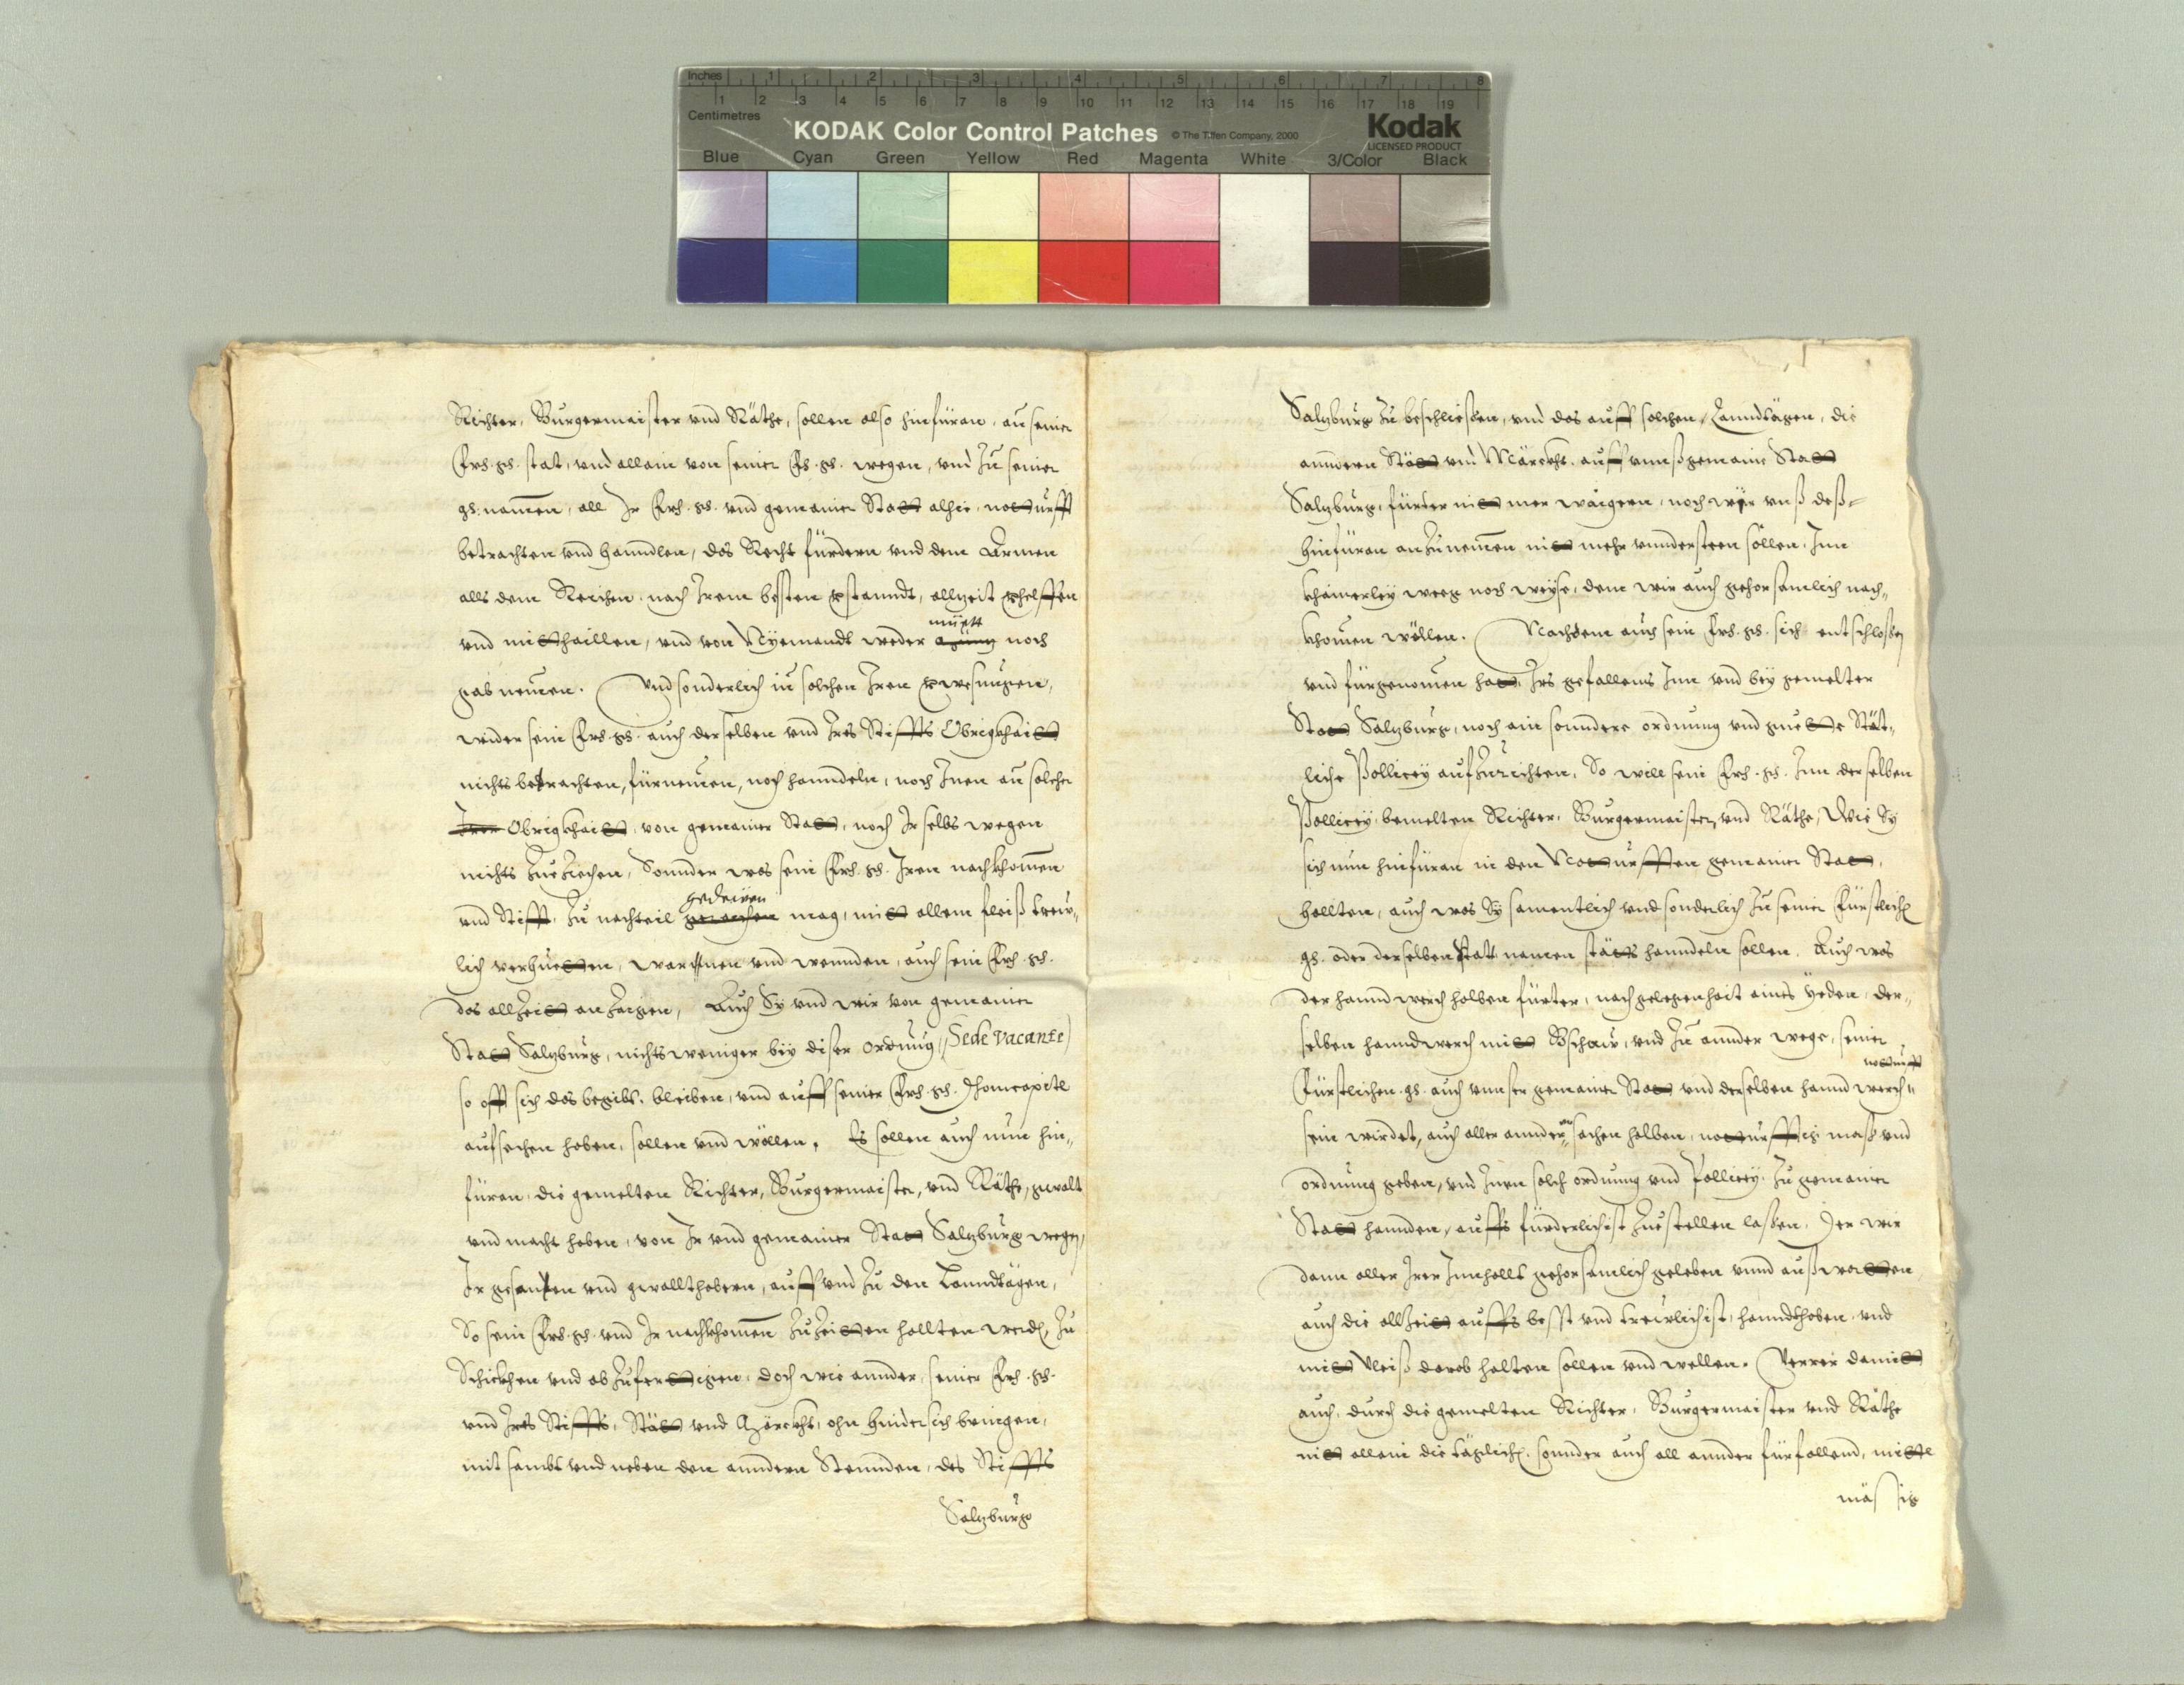 Inches 1 2 3 4 5 6 7 8
1 2 3 4 5 6 7 8 9 10 11 12 13 14 15 16 17 18 19
Centimetres
KODAK Color Control Patches © The Tiffen Company, 2000 Kodak
LICENSED PRODUCT
Blue Cyan Green Yellow Red Magenta White 3/Color Black
Richter, Burgermaister vnd Räthe, sollen also hinfüran, an seiner
Frh. gn. stat, vnd allain von seiner Fr. gn. wegen, vnd Zu seiner
gn. namen, all Ir Frh. gn. vnd gemainer Statt alhie, notturfft
betrachten vnd hanndlen, das Recht fürdern vnd dem Armen
alls dem Reichen, nach Irem bessten verstanndt, allzeit verhelffen
vnd mitthaillen, vnd von Nyemandt weder müett noch
gab nemen. Vnd sonderlich in solchen Iren verwesungen,
wider sein Frh. gn. auch derselben vnd Irs Stiffts Obrigkhaitt
nichts betrachten, fürnemen, noch hanndeln, noch Inen an solcher
Irer Obrigkhaitt, von gemainer Statt, noch Ir selbs wegen
nichts Zueziechen, Sonnder was sein Frh. gn. Iren nachkhomen
vnd Stifft, Zu nachteil gedeihen mag, mitt allem fleiß trew„
lich verhuetten, warnnen vnd wennden, auch sein Frh. gn.
das allzeitt anzaigen, Auch Sy vnd wir von gemainer
Statt Salzburg, nichtsweniger bey diser ordnung, (Sede Vacante)
so offt sich das begibt, bleiben, vnd auff seiner Frh. gn. Thomcapitl
aufsechen haben, sollen vnd wöllen. Es sollen auch nun hin„
füran, die gemelten Richter, Burgermaister, vnd Räthe, gwalt
vnd macht haben, von Ir vnd gemainer Statt Salzburg wegen,
Ir gesanten vnd gwallthabern, auff vnd Zu den Lanndtägen,
So sein Frh. gn. vnd Ir nachkhomen Zu Zeitten hallten werden, Zu
Schickhen vnd abzufertigen, doch wie annder, seiner Frh. gn.
vnd Irs Stiffts, Stätt vnd Märckht, ohn hindersich bringen,
mit sambt vnd neben den anndern Stennden, des Stiffts
Salzburg
Salzburg Zu beschliessen, vnd das auff solchen Lanndtägen, die
anndern Stätt vnd Märckht, auff vnnß gemaine Statt
Salzburg, fürter nitt mer waigern, noch wir vnß deß„
hinfüran anzunemen nitt mehr vnndersteen sollen, Inn
khainerley weeg noch weyse, dem wir auch gehorsamlich nach„
khomen wöllen. Nachdem auch sein Frh. gn. sich entschlossen
vnd fürgenomen hatt, Irs gefallens Inn vnd bey gemelter
Statt Salzburg, noch ain sonndere ordnung vnd guette Stät„
liche Pollicey aufzurichten, So will sein Frh. gn. Inn derselben
Pollicey, bemelten Richter, Burgermaister, vnd Räthe, Wie Sy
sich nun hinfüran in den Notturfften gemainer Statt,
hallten, auch was Sy samentlich vnd sonderlich Zu seiner Fürstlichen
gn. oder derselben statt namen stätts hanndeln sollen, Auch was
der hanndwerch halben fürter, nach gelegenhait aines yeden, der„
selben hanndwerch mitt Bschaw, vnd Zu annder wege, seiner
Fürstlichen gn. auch vnnser gemainer Statt vnd derselben hanndwerch„ notturfft
sein wirdet, auch aller anndern sachen halben, notturfftig maß vnd
ordnung geben, vnd Inen solch ordnung vnd Pollicey, Zu gemainer
Statt hannden, auffs fürderlichist Zuestellen lassen, Der wir
dann aller Irer Innhallt gehorsamlich geleben vnnd außwartten
auch die allzeitt auffs besst vnd trewlichist, hanndthaben, vnd
mitt Vleiß darob halten sollen vnd wellen. Verrer damitt
auch, durch die gemelten Richter, Burgermaister vnd Räthe
nitt allain die täglichen, sonnder auch all annder fürfallend, mittl
mässig